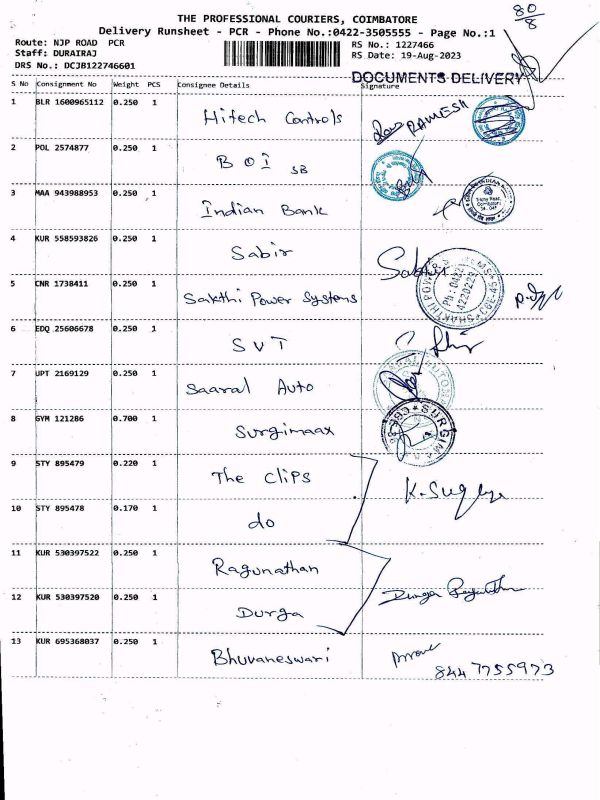 THE PROFESSIONAL COURIERS, COIMBATORE
80/8
Delivery Runsheet - PCR - Phone No.:0422-3505555 - Page No.:1
Route: NJP ROAD PCR
RS No.: 1227466
Staff: DURAIRAJ
RS Date: 19-Aug-2023
DRS No.: DCJB122746601
DOCUMENTS DELIVERY
S No Consignment No Weight PCS Consignee Details Signature
1 BLR 1600965112 0.250 1 Hitech Controls RAMESH
2 POL 2574877 0.250 1 BOI SB
3 MAA 943988953 0.250 1 Indian Bank
4 KUR 558593826 0.250 1 Sabir Sabir
5 CNR 1738411 0.250 1 Sakthi Power Systems
6 EDQ 25606678 0.250 1 SVT
7 UPT 2169129 0.250 1 Saaral Auto
8 GYM 121286 0.700 1 Surgimaax
9 STY 895479 0.220 1 The Clips
10 STY 895478 0.170 1 do
11 KUR 530397522 0.250 1 Ragunathan
12 KUR 530397520 0.250 1 Durga
13 KUR 695368037 0.250 1 Bhuvaneswari
8447755973